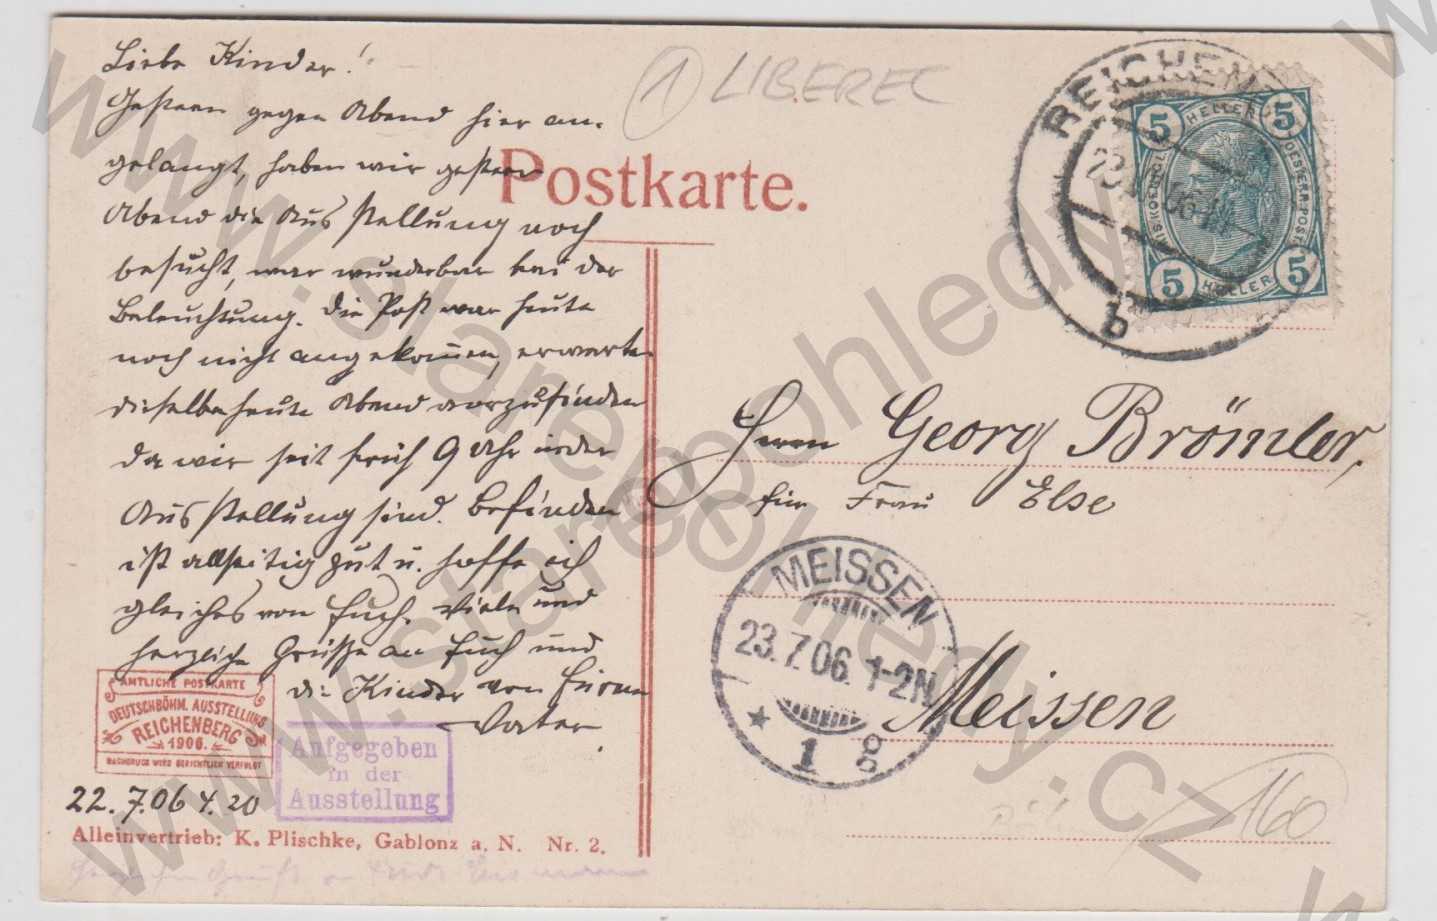 Liebe Kinder!
Gestern gegen Abend hier an-
gelangt, haben wir gestern
Abend die Ausstellung noch
besucht, war wunderbar bei der
Beleuchtung. Die Post war heute
noch nicht angekommen, erwarte
dieselbe heute Abend vorzufinden
da wir seit früh 9 Uhr in der
Ausstellung sind. Befinden
ist allseitig gut u. hoffe ich
gleiches von Euch. Viele und
herzliche Grüsse an Euch und
die Kinder von Eurem
Vater.
22.7.06 4.20
AMTLICHE POSTKARTE
DEUTSCHBÖHM. AUSSTELLUNG
REICHENBERG
1906.
NACHDRUCK WIRD GERICHTLICH VERFOLGT
Aufgegeben
in der
Ausstellung
Alleinvertrieb: K. Plischke, Gablonz a. N. Nr. 2.
1 LIBEREC
Postkarte.
REICHEN
b
5 HELLER 5
5 HELLER 5
Herrn Georg Brömler,
für Frau Else
Meissen
MEISSEN
23.7.06. 1-2N.
* 1 g
160
www.starepohledy.cz
www.starepohledy.cz